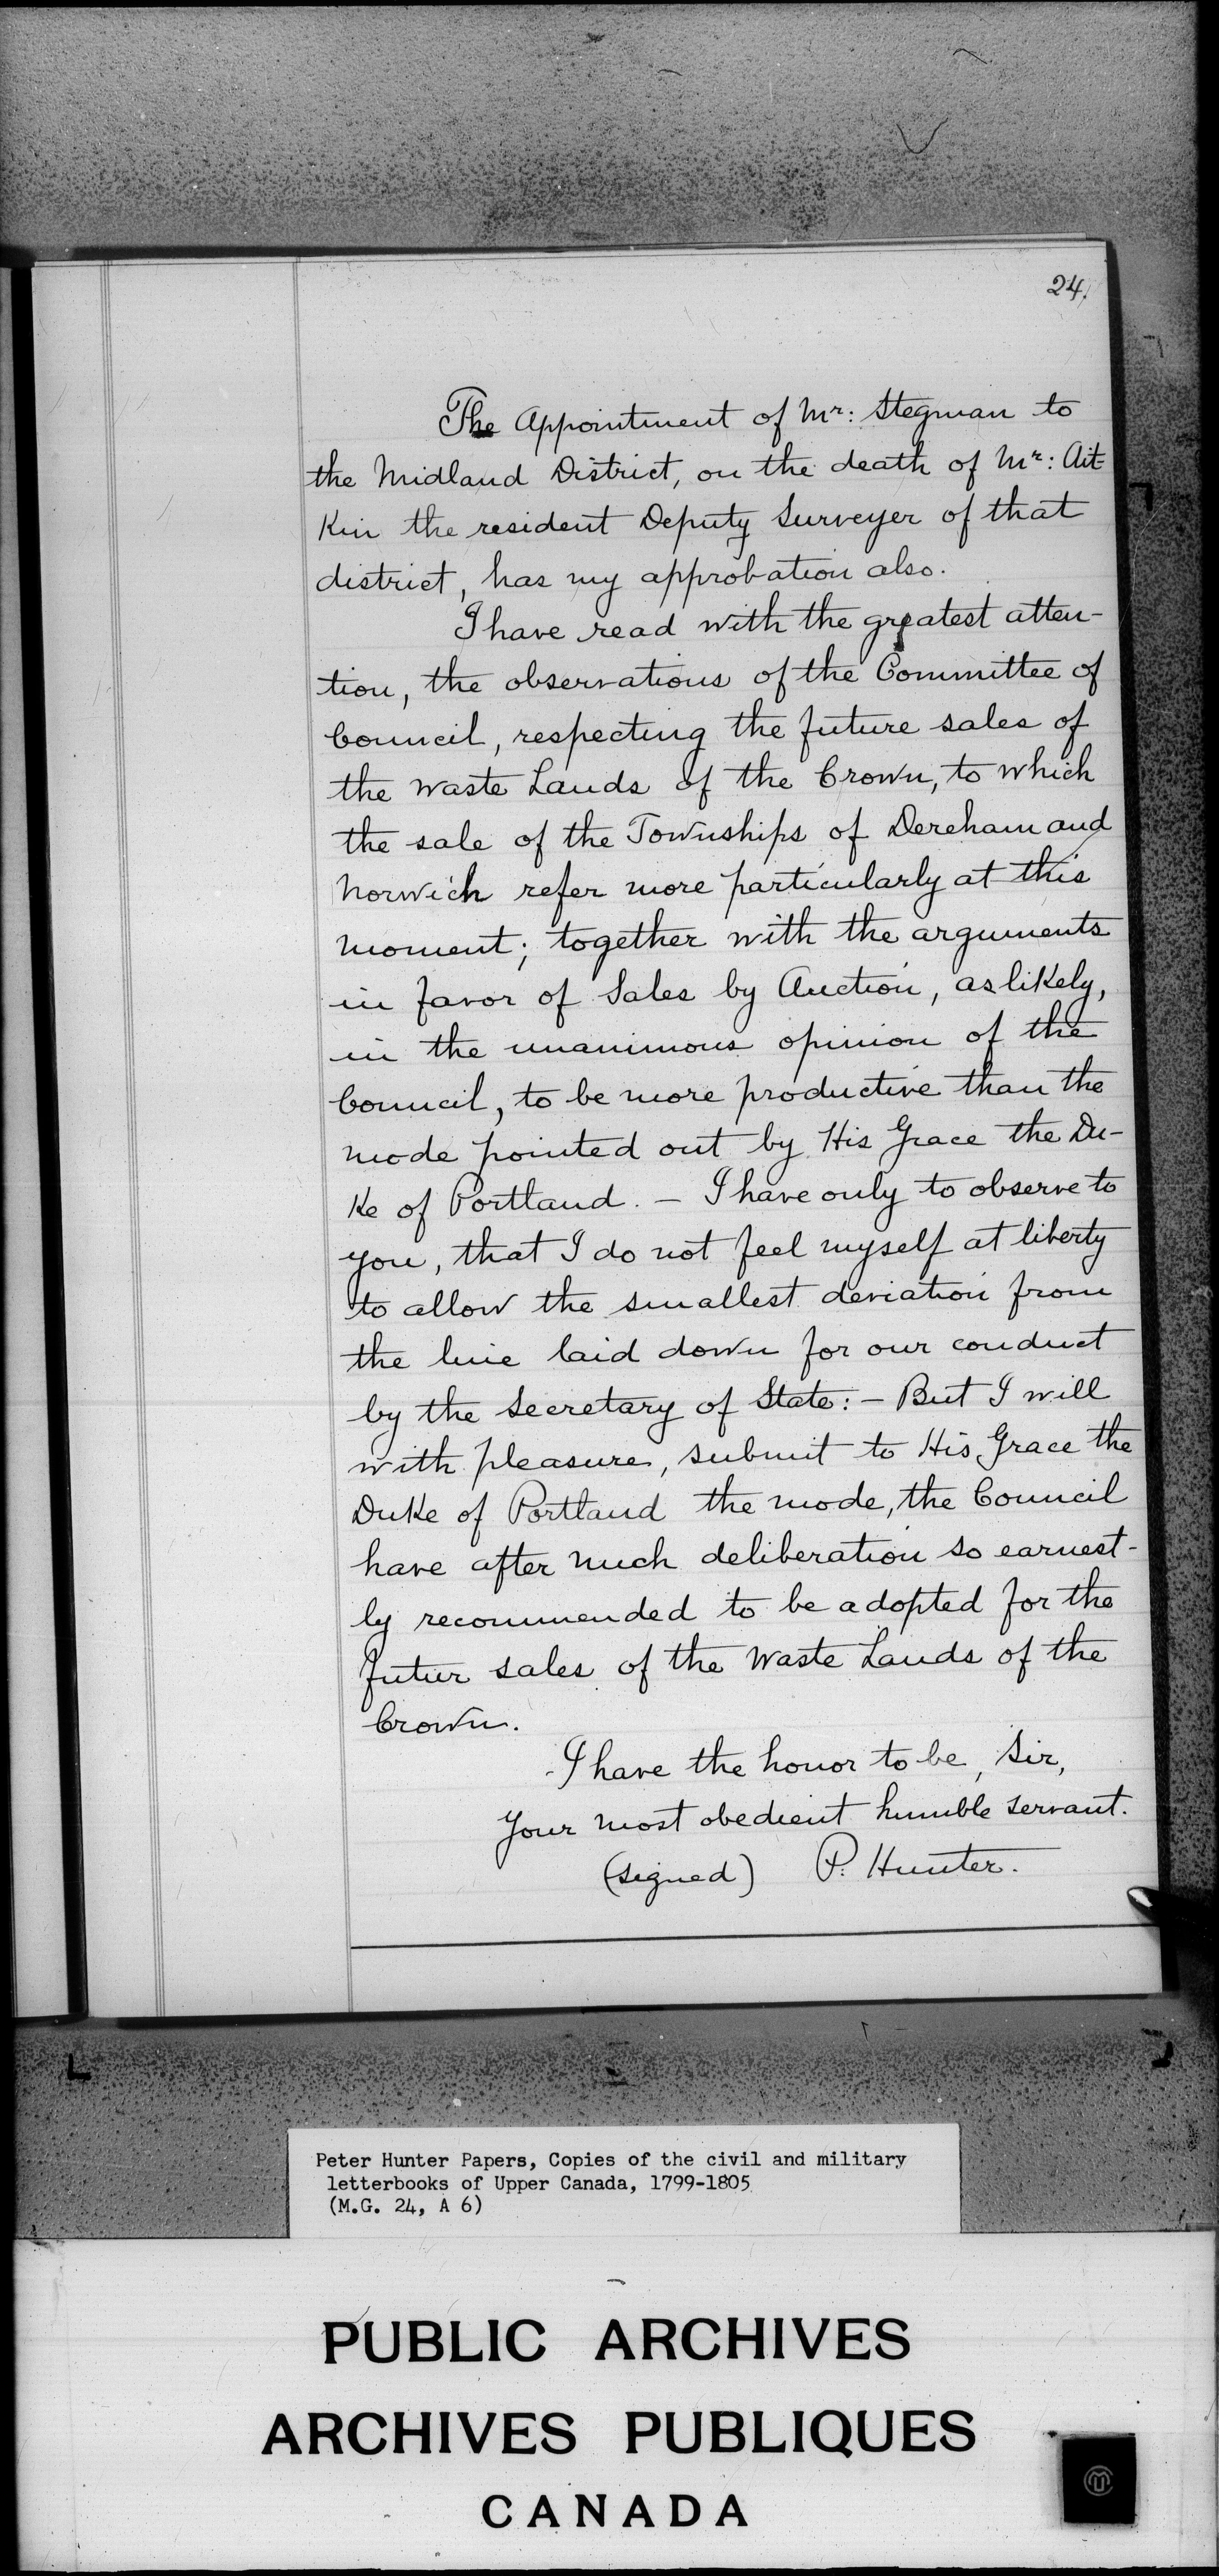 24.
The Appointment of Mr: Stegman to
the Midland District, on the death of Mr: Ait-
Kin the resident Deputy Surveyer of that
district, has my approbation also.
I have read with the greatest atten-
tion, the observations of the Committee of
Council, respecting the future sales of
the waste Lands of the Crown, to which
the sale of the Townships of Dereham and
Norwich refer more particularly at this
moment; together with the arguments
in favor of Sales by Auction, as likely,
in the unanimous opinion of the
Council, to be more productive than the
mode pointed out by His Grace the Du-
Ke of Portland. - I have only to observe to
you, that I do not feel myself at liberty
to allow the smallest deviation from
the line laid down for our conduct
by the Secretary of State: - But I will
with pleasure, submit to His Grace the
Duke of Portland the mode, the Council
have after much deliberation so earnest-
ly recommended to be adopted for the
futur sales of the Waste Lands of the
Crown.
I have the honor to be, Sir,
Your most obedient humble servant.
(signed) P. Hunter.
Peter Hunter Papers, Copies of the civil and military
letterbooks of Upper Canada, 1799-1805
(M.G. 24, A 6)
PUBLIC ARCHIVES
ARCHIVES PUBLIQUES
CANADA